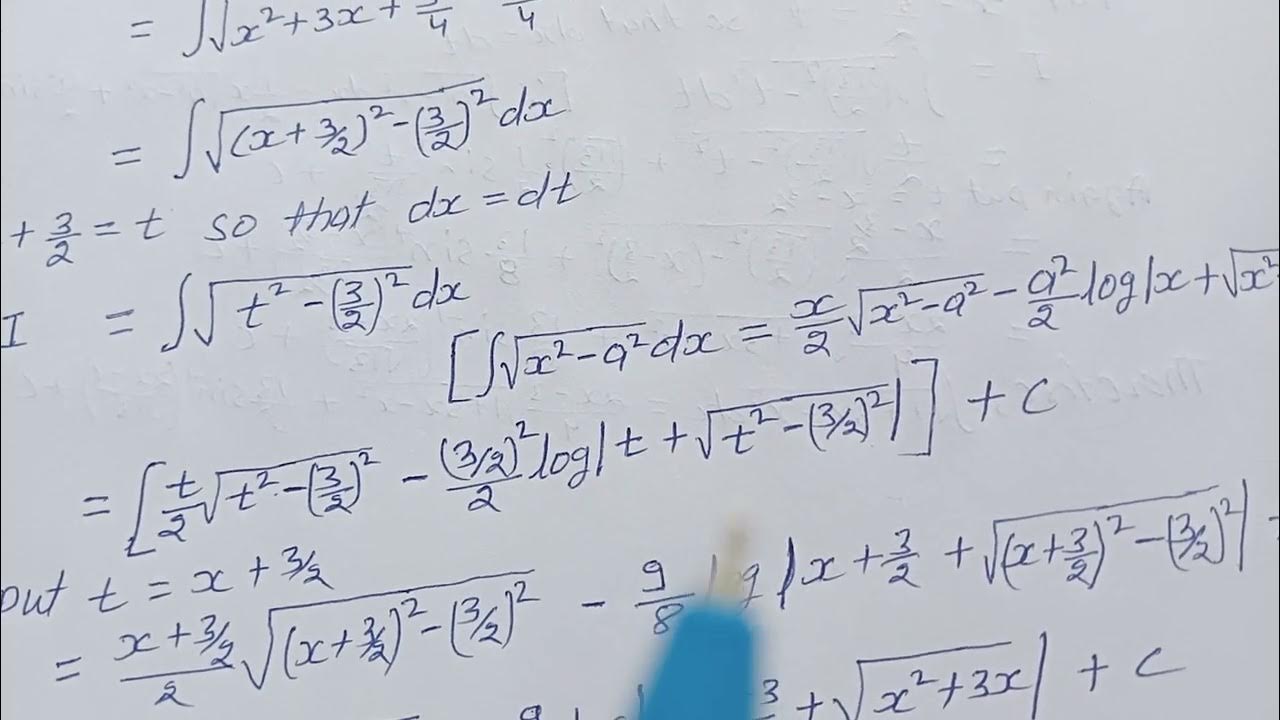 = ∫√x² + 3x +
= ∫√(x + 3/2)² - (3/2)² dx
+ 3/2 = t so that dx = dt
I = ∫√t² - (3/2)² dx
[∫√x² - a² dx = x/2 √x² - a² - a²/2 log|x + √x²
= [t/2 √t² - (3/2)² - (3/2)²/2 log|t + √t² - (3/2)²|] + C
put t = x + 3/2
= x + 3/2 / 2 √(x + 3/2)² - (3/2)² - 9/8 |x + 3/2 + √(x + 3/2)² - (3/2)²|
+ √x² + 3x| + C